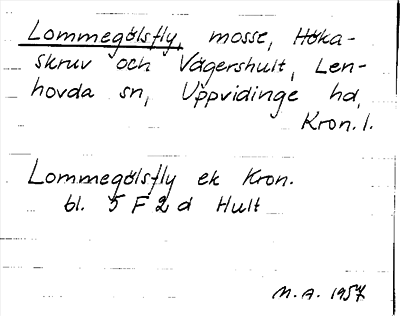 Lommegölsfly, mosse, Höka-
skruv och Vägershult, Len-
hovda sn, Uppvidinge hd,
Kron. l.
Lommegölsfly ek Kron.
bl. 5 F 2 d Hult
M. A. 1957